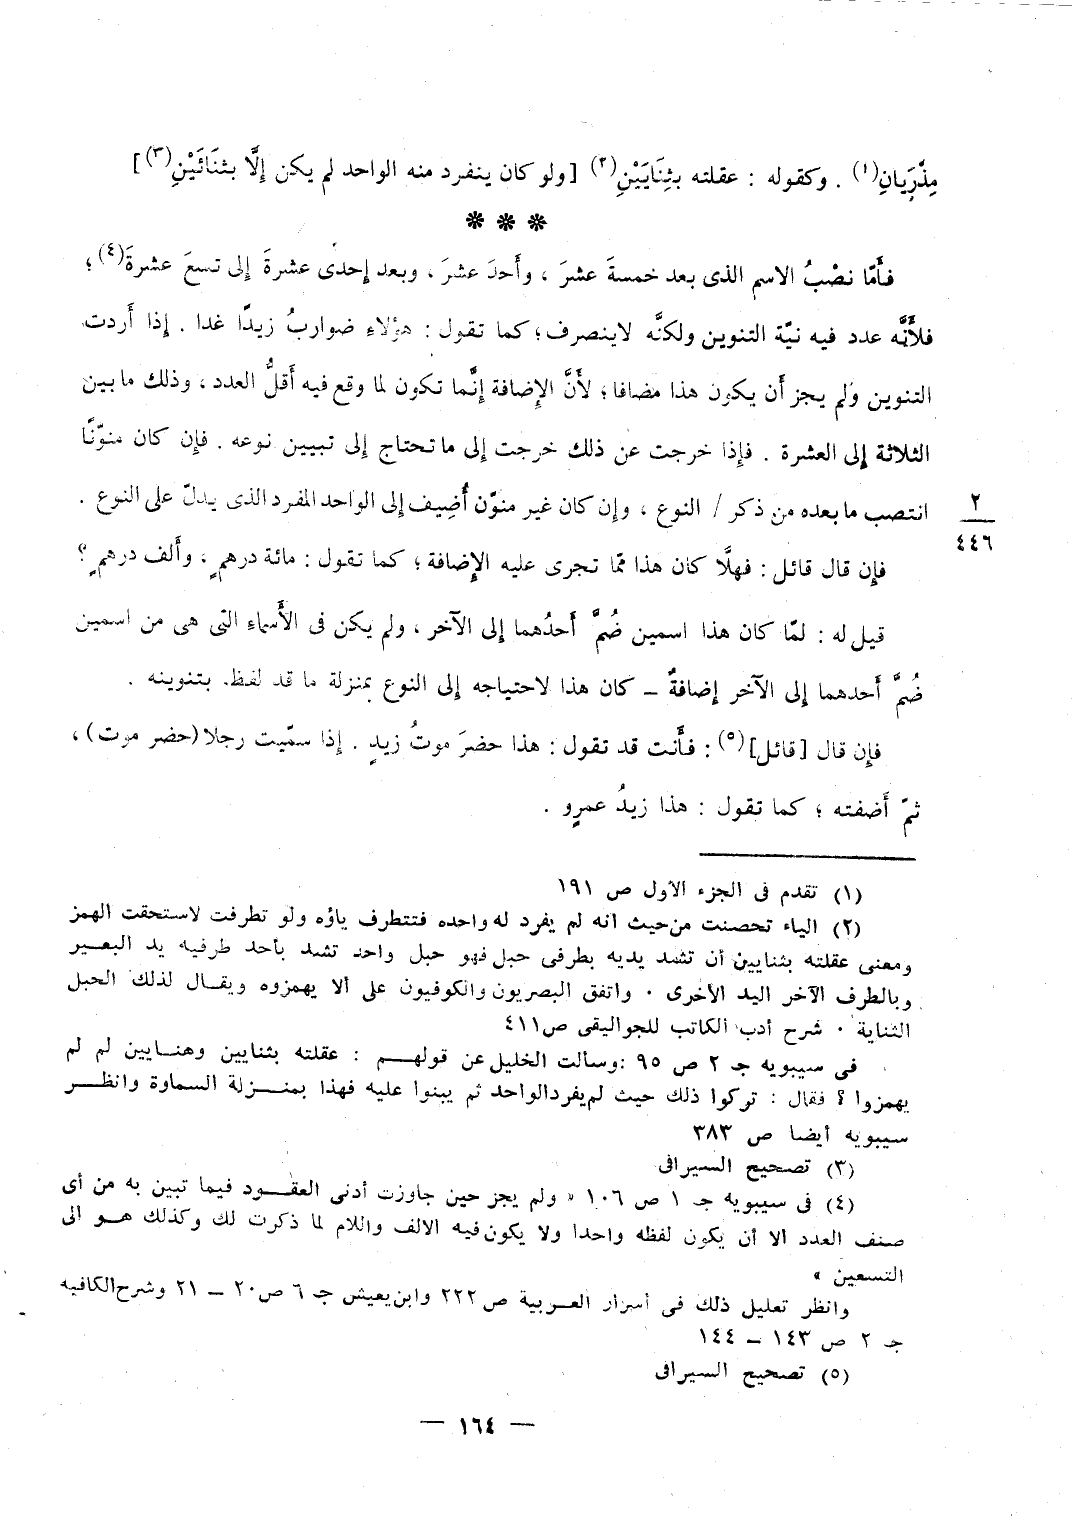 مِذْرَيانِ(١) . وكقوله : عقلته بثِنَايَيْنِ(٢) [ولو كان ينفرد منه الواحد لم يكن إلَّا بثنَائَيْنِ(٣)]
***
فأَمّا نصْبُ الاسم الذى بعد خمسةَ عشرَ ، وأَحدَ عشرَ ، وبعد إحدى عشرةَ إلى تسعَ عشرةَ(٤) ؛
فلأَنَّه عدد فيه نيّة التنوين ولكنَّه لاينصرف ؛ كما تقول : هؤلاءِ ضواربُ زيدًا غدا . إذا أَردت
التنوين ولم يجز أَن يكون هذا مضافا ؛ لأَنَّ الإضافة إنَّما تكون لما وقع فيه أَقلُّ العدد ، وذلك ما بين
الثلاثة إلى العشرة . فإذا خرجت عن ذلك خرجت إلى ما تحتاج إلى تبيين نوعه . فإن كان منوّنًا
انتصب ما بعده من ذكر / النوع ، وإن كان غير منوّن أُضِيف إلى الواحد المفرد الذى يدلّ على النوع .
٢
٤٤٦
فإن قال قائل : فهلَّا كان هذا ممّا تجرى عليه الإضافة ؛ كما تقول : مائة درهمٍ ، وأَلف درهمٍ ؟
قيل له : لمّا كان هذا اسمين ضُمَّ أَحدُهما إلى الآخر ، ولم يكن فى الأَسماءِ التى هى من اسمين
ضُمَّ أَحدهما إلى الآخر إضافةٌ – كان هذا لاحتياجه إلى النوع بمنزلة ما قد لفظ بتنوينه .
فإن قال [قائل](٥) : فأَنت قد تقول : هذا حضرَ موتُ زيدٍ . إذا سمّيت رجلا (حضر موت) ،
ثمّ أَضفته ؛ كما تقول : هذا زيدُ عمرٍو .
(١) تقدم فى الجزء الأول ص ١٩١
(٢) الياء تحصنت من حيث انه لم يفرد له واحده فتتطرف ياؤه ولو تطرفت لاستحقت الهمز
ومعنى عقلته بثنايين أن تشد يديه بطرفى حبل فهو حبل واحد تشد بأحد طرفيه يد البعير
وبالطرف الآخر اليد الأخرى . واتفق البصريون والكوفيون على ألا يهمزوه ويقال لذلك الحبل
الثناية . شرح أدب الكاتب للجواليقى ص٤١١
فى سيبويه جـ ٢ ص ٩٥ : وسالت الخليل عن قولهم : عقلته بثنايين وهنايين لم لم
يهمزوا ؟ فقال : تركوا ذلك حيث لم يفرد الواحد ثم يبنوا عليه فهذا بمنزلة السماوة وانظر
سيبويه أيضا ص ٣٨٣
(٣) تصحيح السيرافى
(٤) فى سيبويه جـ ١ ص ١٠٦ « ولم يجز حين جاوزت أدنى العقود فيما تبين به من أى
صنف العدد الا أن يكون لفظه واحدا ولا يكون فيه الالف واللام لما ذكرت لك وكذلك هو الى
التسعين »
وانظر تعليل ذلك فى أسرار العربية ص ٢٢٢ وابن يعيش جـ ٦ ص ٢٠ – ٢١ وشرح الكافيه
جـ ٢ ص ١٤٣ – ١٤٤
(٥) تصحيح السيرافى
– ١٦٤ –